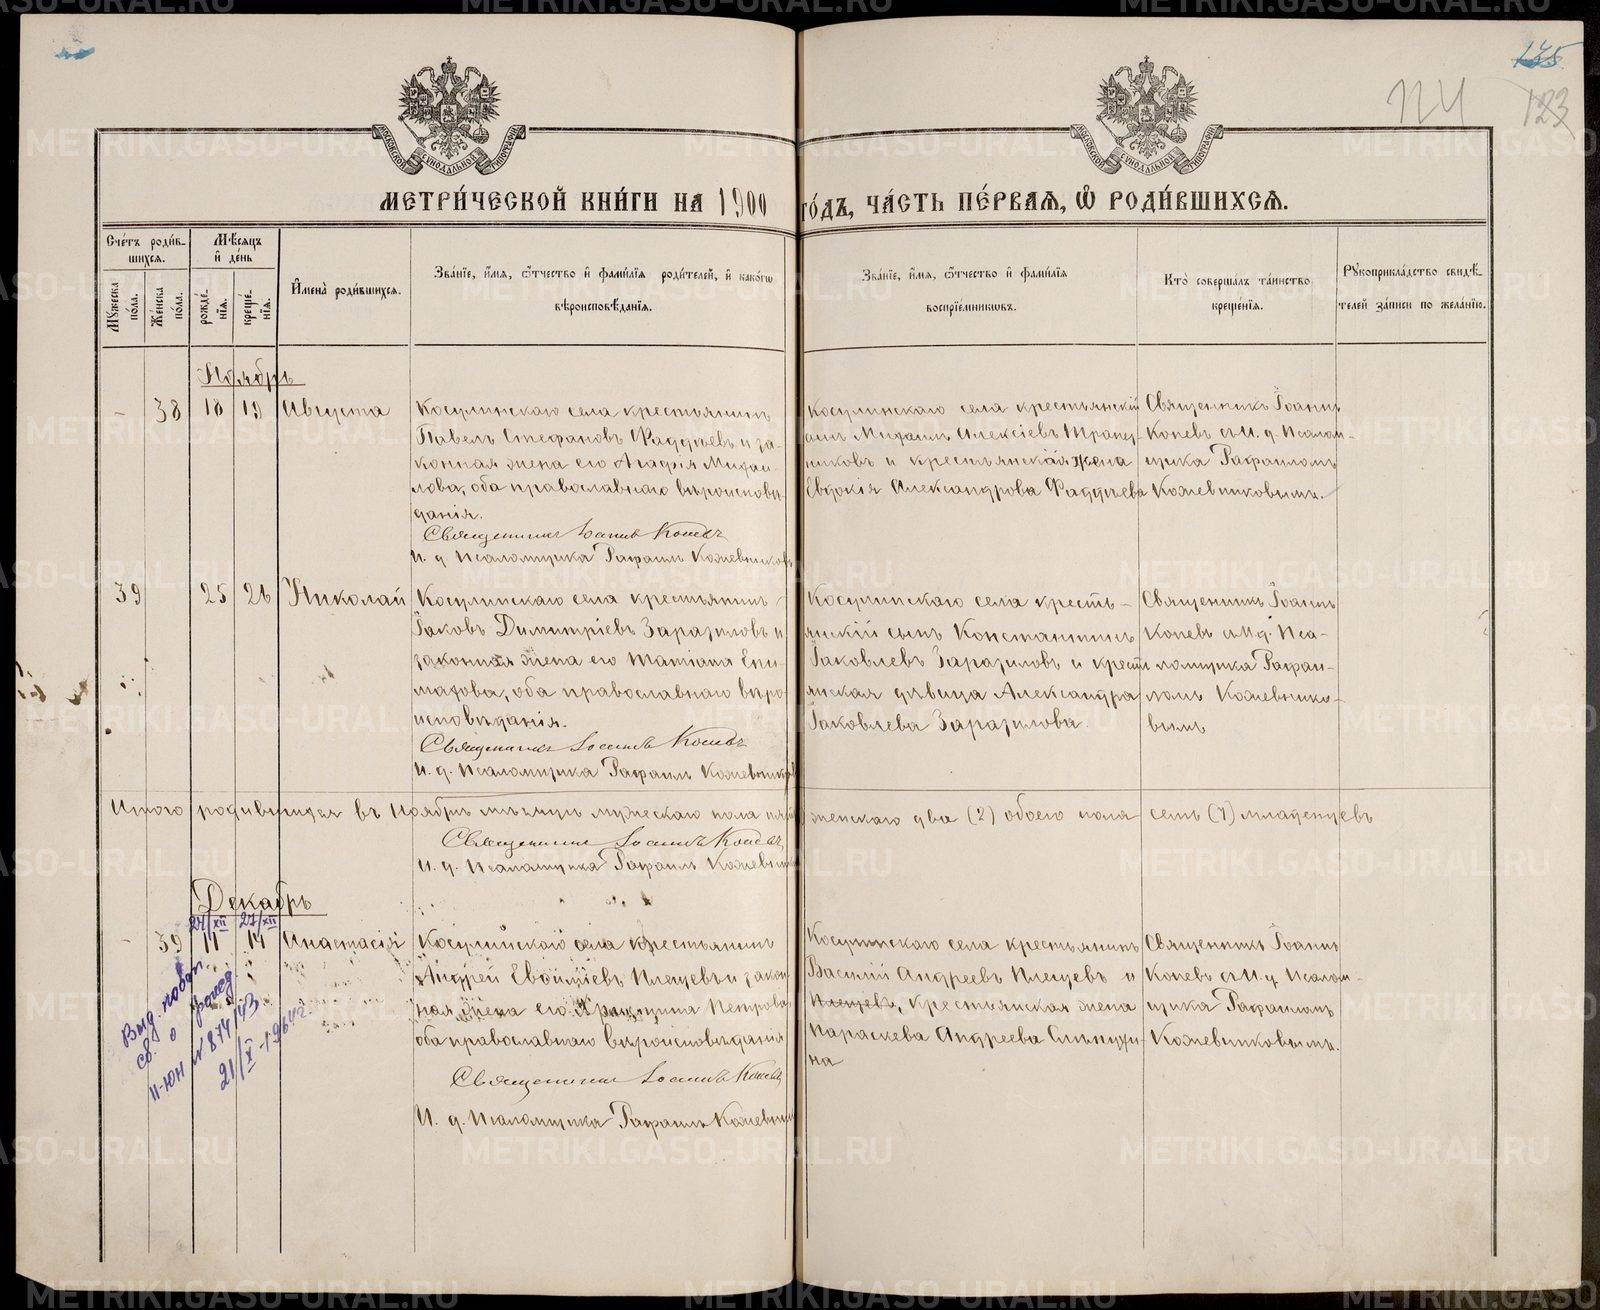 135
123
МЕТРИЧЕСКОЙ КНИГИ НА 1900 ГОДЪ, ЧАСТЬ ПЕРВАЯ, Ѡ РОДИВШИХСЯ.
Счетъ родившихся.
Мужеска пола.
Женска пола.
Мѣсяцъ и день
рожденія.
крещенія.
Имена родившихся.
Званіе, имя, отчество и фамилія родителей, и какогω
вѣроисповѣданія.
Званіе, имя, отчество и фамилія
воспріемникωвъ.
Кто совершалъ таинство
крещенія.
Рукоприкладство свидѣ-
телей записи по желанію.
Ноябрь
- 38 18 19 Августа
Косулинскаго села крестьянинъ
Павелъ Стефановъ Фаддѣевъ и за-
конная жена его Агафія Михаи-
лова, оба православнаго вѣроисповѣ-
данія.
Священникъ Іоаннъ Коневъ
И. д. псаломщика Рафаилъ Кожевниковъ
Косулинскаго села крестьянскій
сынъ Михаилъ Алексіевъ
и крестьянская жена
Евдокія Александрова Фаддѣева
Священникъ Іоаннъ
Коневъ съ И. д. псалом-
щика Рафаиломъ
Кожевниковымъ.
39 25 26 Николай
Косулинскаго села крестьянинъ
Іаковъ Димитріевъ Заразиловъ и
законная жена его Татіана Епи-
махова, оба православнаго вѣро-
исповѣданія.
Священникъ Іоаннъ Коневъ
И. д. псаломщика Рафаилъ Кожевниковъ
Косулинскаго села кресть-
янскій сынъ Константинъ
Іаковлевъ Заразиловъ и кресть
янская дѣвица Александра
Іаковлева Заразилова.
Священникъ Іоаннъ
Коневъ съ И. д. пса-
ломщика Рафаи-
ломъ Кожевнико-
вымъ
Итого родившихся въ Ноябрѣ мѣсяцѣ мужескаго пола пять женскаго два (2) обоего пола семь (7) младенцевъ
Священникъ Іоаннъ Коневъ
И. д. псаломщика Рафаилъ Кожевниковъ
Декабрь
24/XII 27/XII
- 39 11 14 Анастасія
Косулинскаго села крестьянинъ
Андрей Евѳиміевъ Плещевъ и закон
ная жена его Петрова
оба православнаго вѣроисповѣданія
Священникъ Іоаннъ Коневъ
И. д. псаломщика Рафаилъ Кожевниковъ
Косулинскаго села крестьянинъ
Василій Андреевъ Плещевъ и
Плещевъ, крестьянская жена
Параскева Андреева
на
Священникъ Іоаннъ
Коневъ съ И. д. псалом-
щика Рафаиломъ
Кожевниковымъ.
Выд. повт.
св. о рожд
II-ЮН № 874143
21/X-1964г.
METRIKI.GASO-URAL.RU